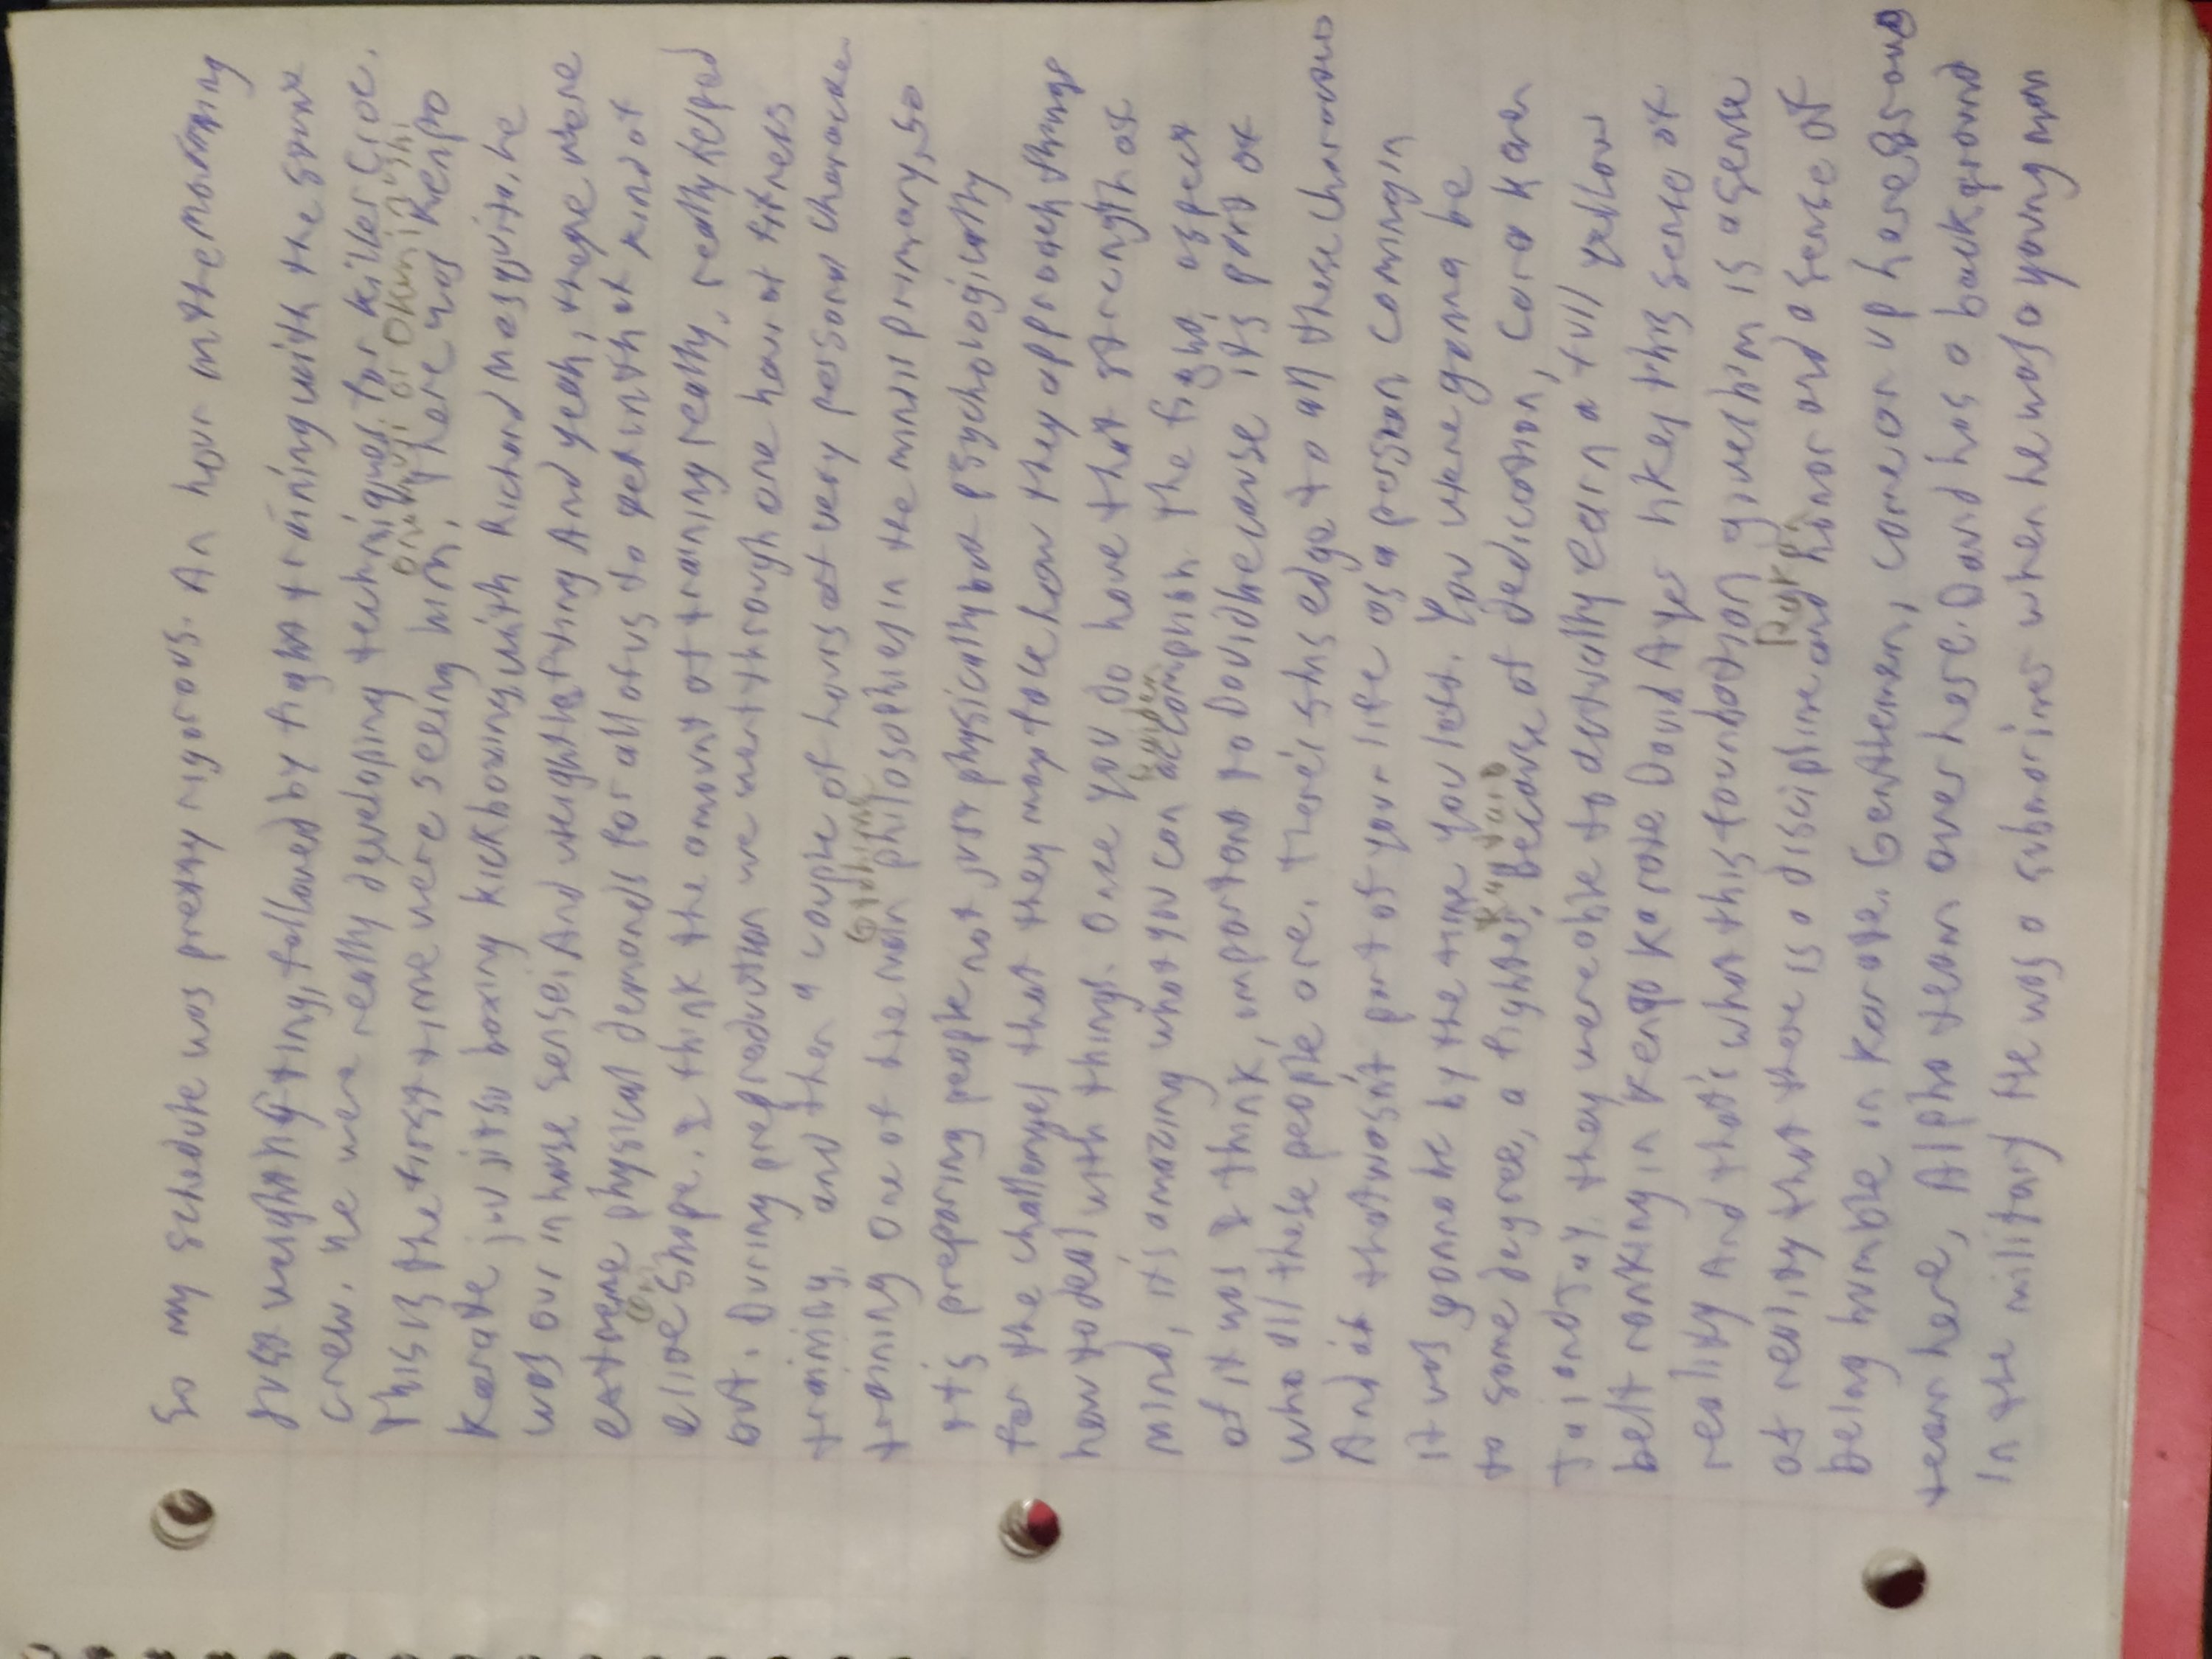 So my schedule was pretty rigorous. An hour in the morning
just weightlifting, followed by fight training with the same
crew. We were really developing techniques for killer croc.
This is the first time were seeing him, there was Kenpo
Karate jiu jitsu boxing kickboxing with Richard mesquita, he
was our in house sensei And weightlifting And yeah, there were
extreme physical demands for all of us to get in that kind of
elite shape. I think the amount of training really, really helped
but. During preproduction we went through one hour of fitness
training, and then a couple of hours of very personal character
training One of the main philosophies in the mind is primary, so
its preparing people not just physically but psychologically
for the challenges that they may face how they approach things
how to deal with things. Once you do have that strength of
mind, it's amazing what you can accomplish The fight aspect
of it was I think, important to David because its part of
who all these people are. There's this edge to all these characters
And if that wasn't part of your life as a person coming in
it was gonna be by the time you left. You were gonna be
to some degree, a fighter, Because of dedication, Cara Karen
Jai and Jay. they were able to actually earn a full yellow
belt ranking in kenpo karate David Ayer likes this sense of
reality And that's what this foundation gives him is a sense
of reality that there is a discipline and honor and a sense of
being humble in karate. Gentlemen, come on up here Bravo
team here, Alpha team over here. David has a background
in the military He was a submariner when he was a young man